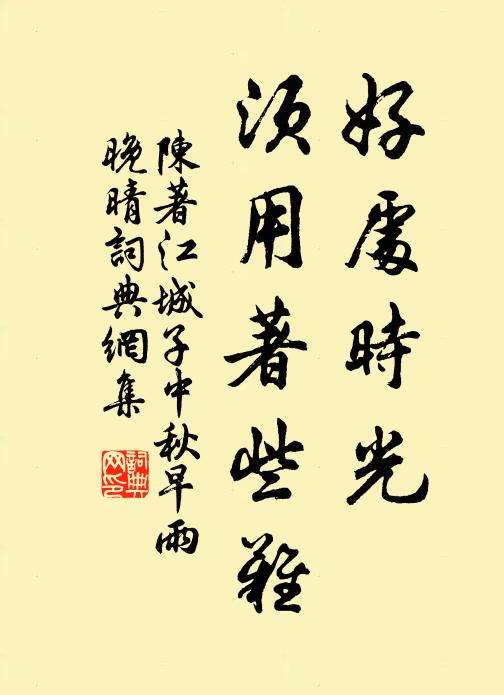 好處時光
須用著些難
陳著江城子中秋早雨
晚晴詞典網集
詞典
网印